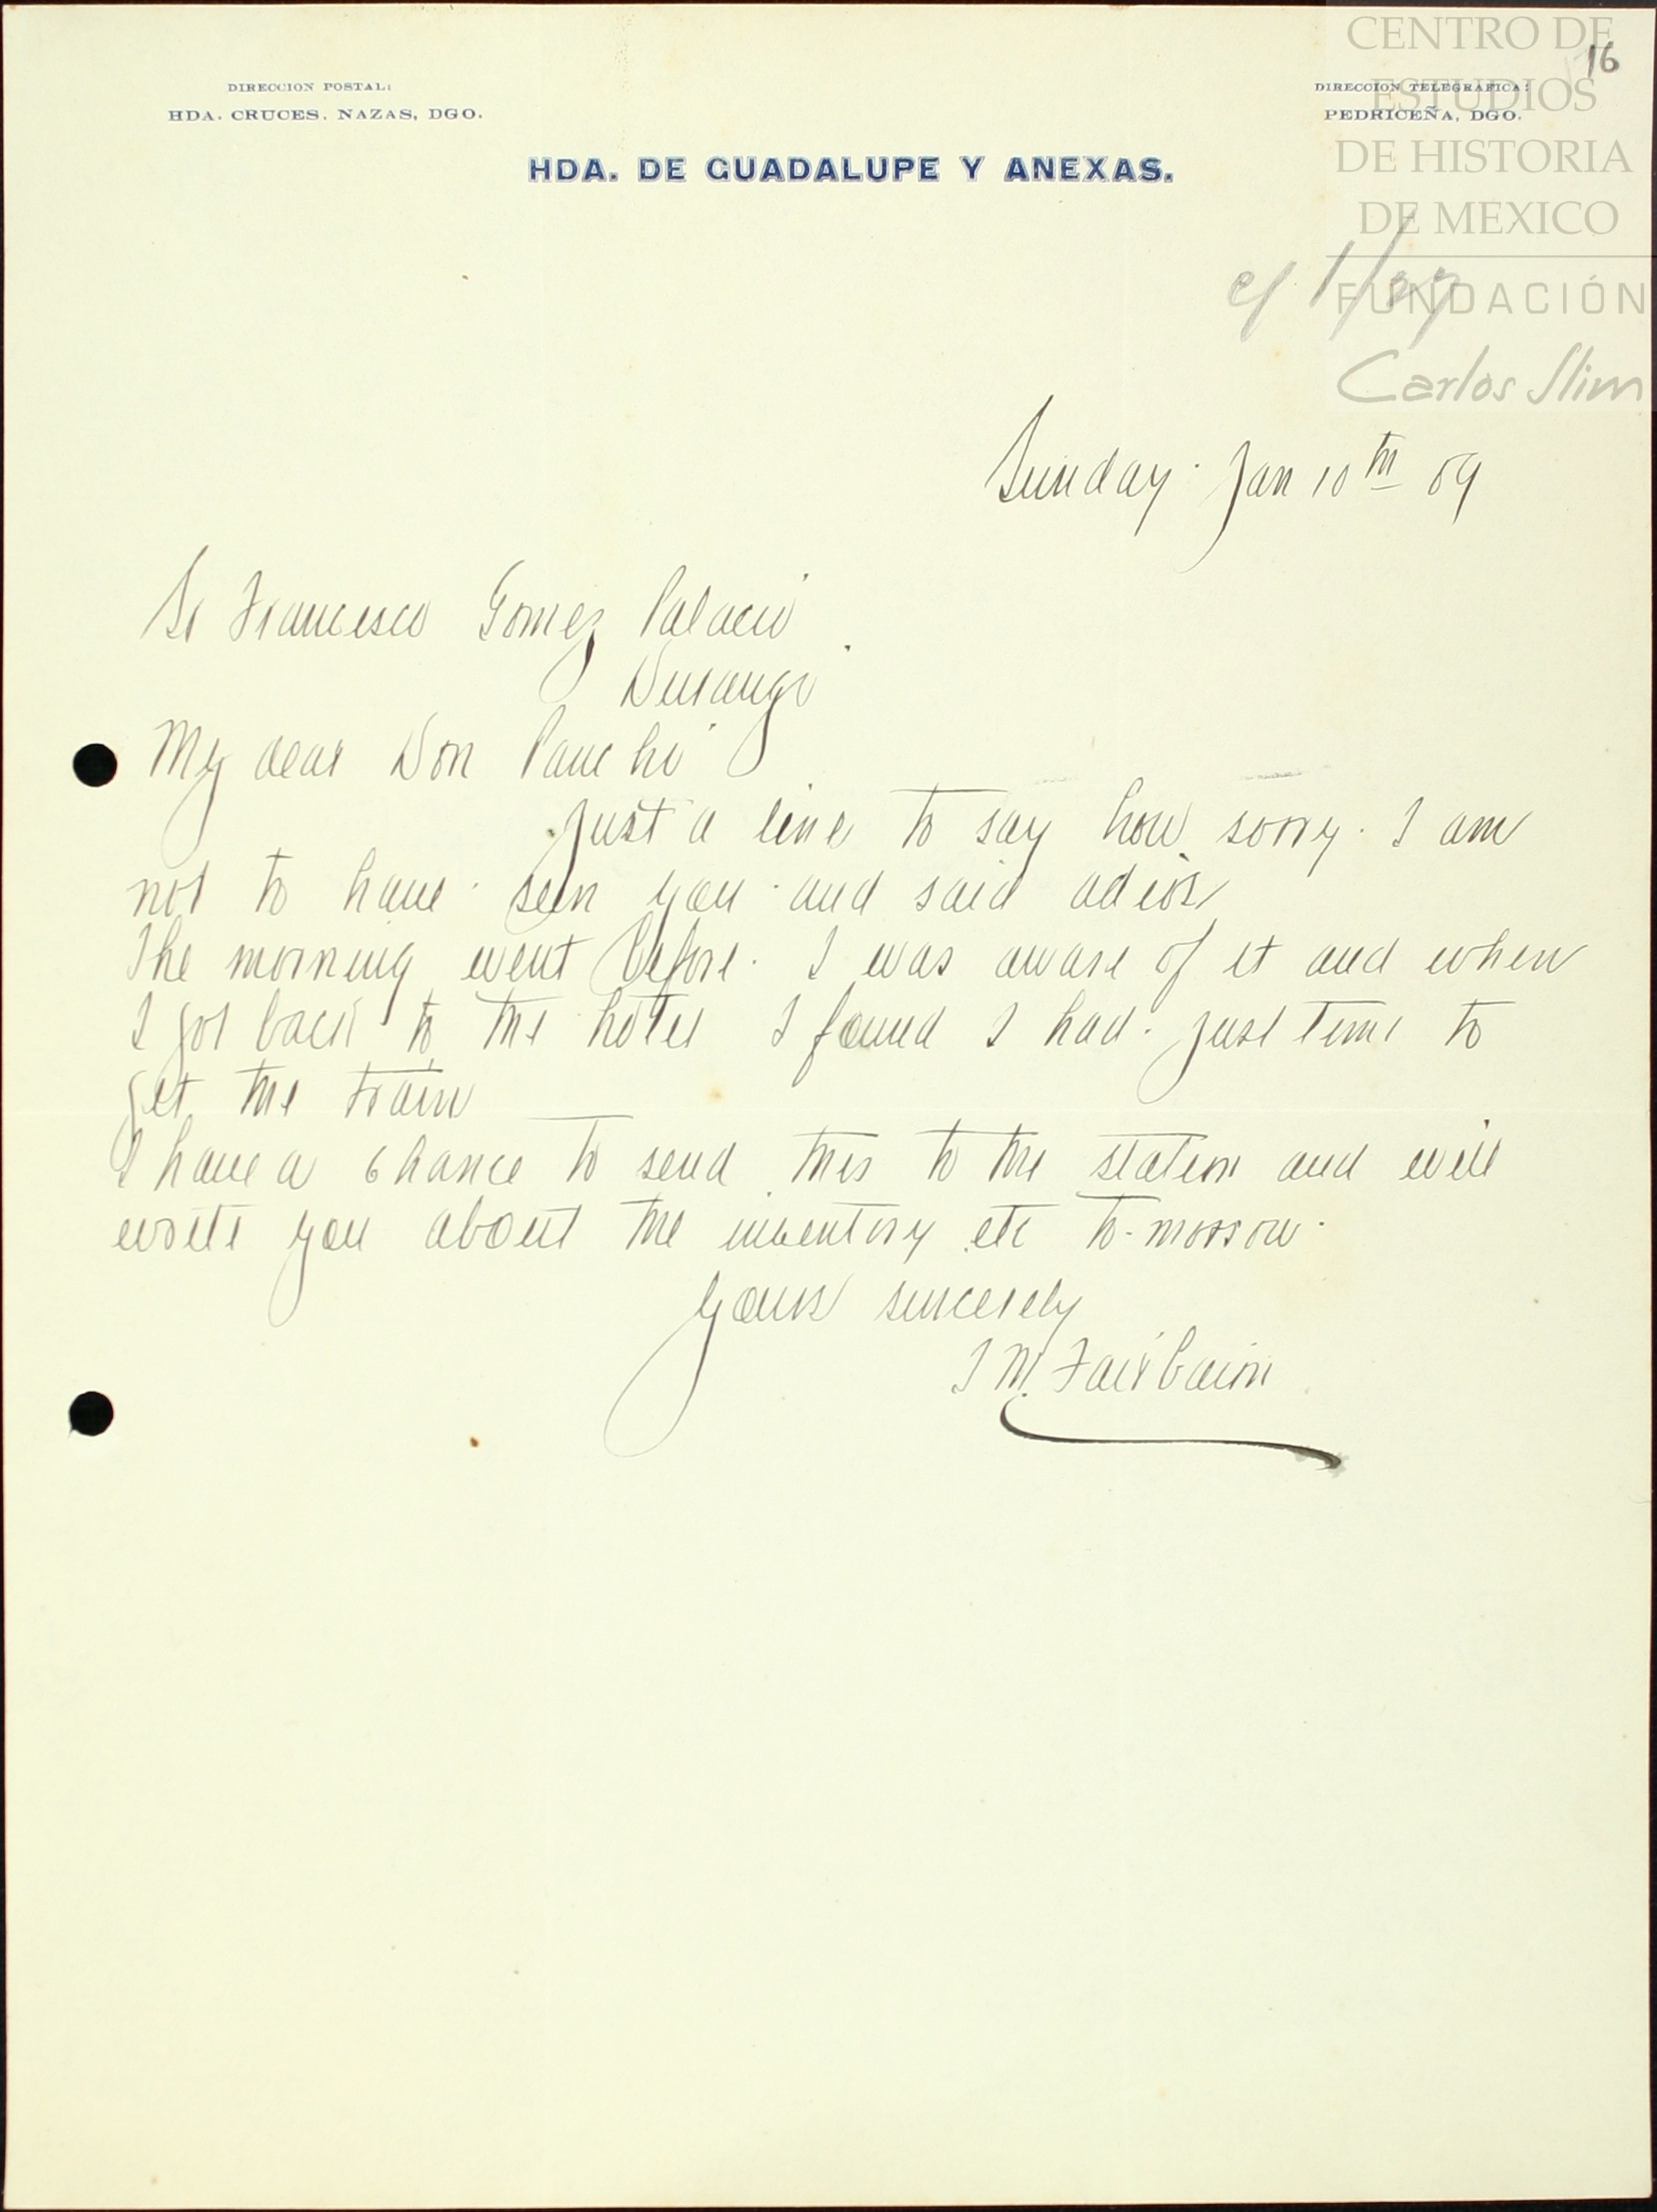 DIRECCION POSTAL:
HDA. CRUCES, NAZAS, DGO.
DIRECCION TELEGRAFICA:
PEDRICEÑA, DGO.
HDA. DE GUADALUPE Y ANEXAS.
16
CENTRO DE
ESTUDIOS
DE HISTORIA
DE MEXICO
FUNDACIÓN
Carlos Slim
Sunday. Jan 10th 09
Sr Francisco Gomez Palacio
Durango
My dear Don Pancho
Just a line to say how sorry. I am
not to have seen you and said adios
The morning went before. I was aware of it and when
I got back to the hotel I found I had. just time to
get the train
I have a chance to send this to the station and will
write you about the inventory etc to-morrow.
Yours sincerely
M. Fairbairn